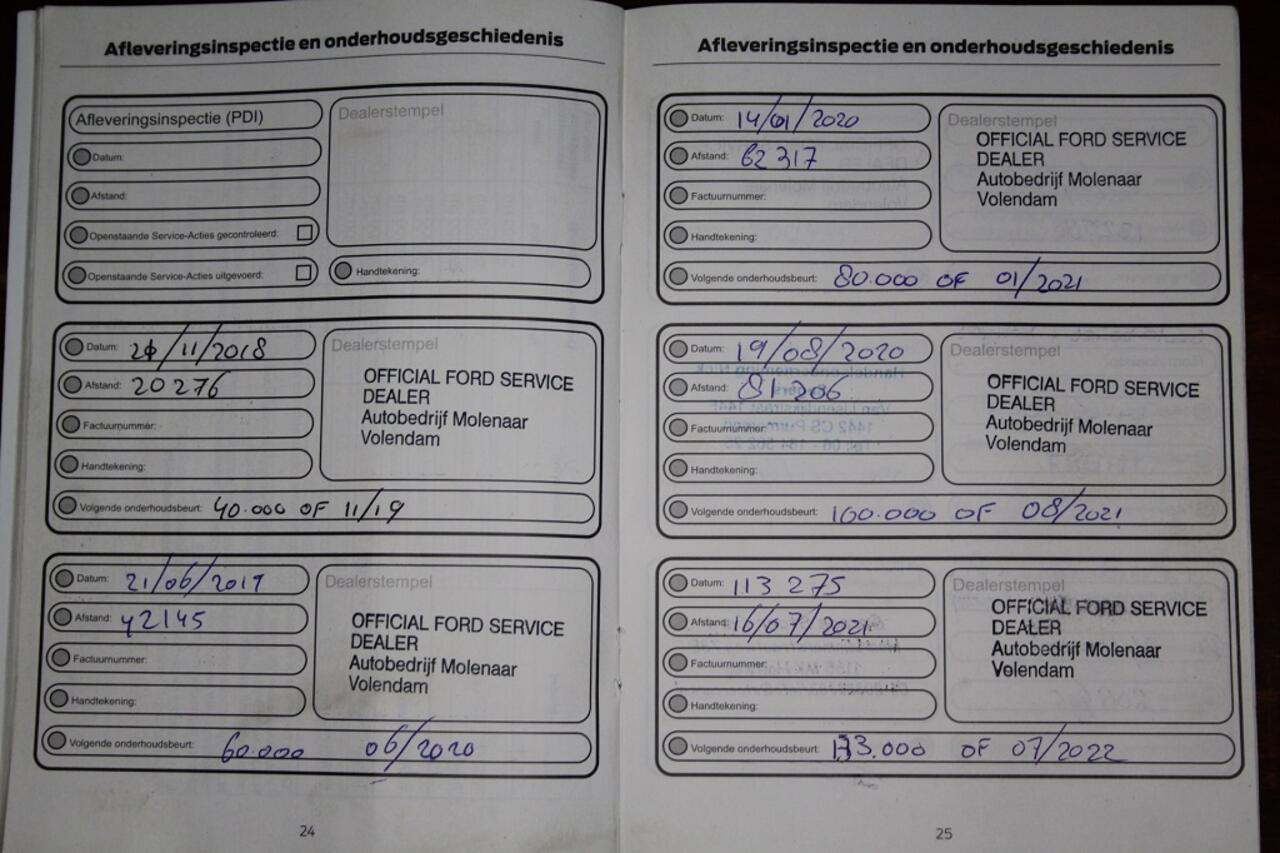 Afleveringsinspectie en onderhoudsgeschiedenis
Afleveringsinspectie (PDI)
Dealerstempel
Datum:
Afstand:
Openstaande Service-Acties gecontroleerd:
Openstaande Service-Acties uitgevoerd:
Handtekening:
Datum: /11/2018
Dealerstempel
Afstand: 20276
OFFICIAL FORD SERVICE
DEALER
Autobedrijf Molenaar
Volendam
Factuurnummer:
Handtekening:
Volgende onderhoudsbeurt: 40.000 OF 11/19
Datum: 21/06/2019
Dealerstempel
Afstand: 42145
OFFICIAL FORD SERVICE
DEALER
Autobedrijf Molenaar
Volendam
Factuurnummer:
Handtekening:
Volgende onderhoudsbeurt: 60.000 06/2020
24
Afleveringsinspectie en onderhoudsgeschiedenis
Datum: 14/01/2020
Dealerstempel
Afstand: 62317
OFFICIAL FORD SERVICE
DEALER
Autobedrijf Molenaar
Volendam
Factuurnummer:
Handtekening:
Volgende onderhoudsbeurt: 80.000 OF 01/2021
Datum: 19/08/2020
Dealerstempel
Afstand: 81206
OFFICIAL FORD SERVICE
DEALER
Autobedrijf Molenaar
Volendam
Factuurnummer:
Handtekening:
Volgende onderhoudsbeurt: 100.000 OF 08/2021
Datum: 113 275
Dealerstempel
Afstand: 16/07/2021
OFFICIAL FORD SERVICE
DEALER
Autobedrijf Molenaar
Volendam
Factuurnummer:
Handtekening:
Volgende onderhoudsbeurt: OF 07/2022
25